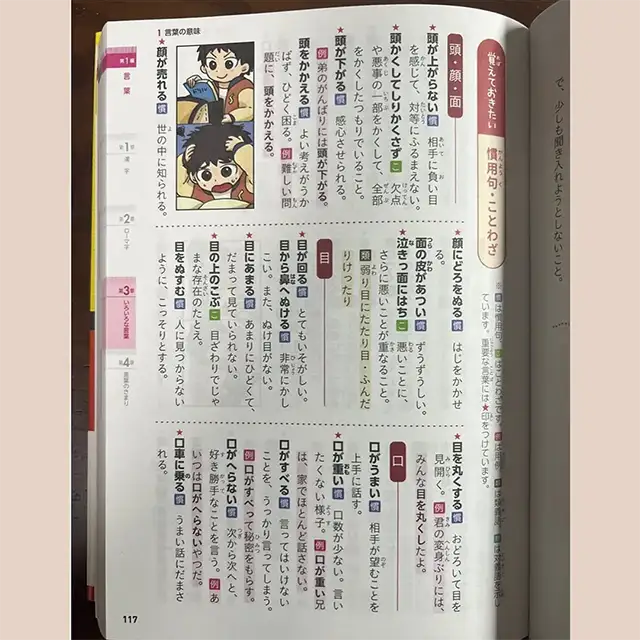 で、少しも聞き入れようとしないこと。
覚えておきたい
慣用句・ことわざ
ています。重要な言葉には★印をつけています。
頭・顔・面
★頭が上がらない 慣 相手に負い目
を感じて、対等にふるまえない。
頭かくしてしりかくさず こ 欠点
や悪事の一部をかくして、全部
をかくしたつもりでいること。
★頭が下がる 慣 感心させられる。
例 弟のがんばりには頭が下がる。
頭をかかえる 慣 よい考えがうか
ばず、ひどく困る。例 難しい問
題に、頭をかかえる。
★顔が売れる 慣 世の中に知られる。
★顔にどろをぬる 慣 はじをかかせ
る。
面の皮があつい 慣 ずうずうしい。
★泣きっ面にはち こ 悪いことに、
さらに悪いことが重なること。
類 弱り目にたたり目・ふんだ
りけったり
目
★目が回る 慣 とてもいそがしい。
目から鼻へぬける 慣 非常にかし
こい。また、ぬけ目がない。
★目にあまる 慣 あまりにひどくて、
だまって見ていられない。
★目の上のこぶ こ 目ざわりでじゃ
まな存在のたとえ。
目をぬすむ 慣 人に見つからない
ように、こっそりとする。
★目を丸くする 慣 おどろいて目を
見開く。例 君の変身ぶりには、
みんな目を丸くしたよ。
口
口がうまい 慣 相手が望むことを
上手に話す。
★口が重い 慣 口数が少ない。言い
たくない様子。例 口が重い兄
は、家でほとんど話さない。
口がすべる 慣 言ってはいけない
ことを、うっかり言ってしまう。
例 口がすべって秘密をもらす。
口がへらない 慣 次から次へと、
好き勝手なことを言う。例 あ
いつは口がへらないやつだ。
★口車に乗る 慣 うまい話にだまさ
れる。
1 言葉の意味
第1編
言葉
第1章
漢字
第2章
ローマ字
第3章
いろいろな言葉
第4章
言葉のきまり
117